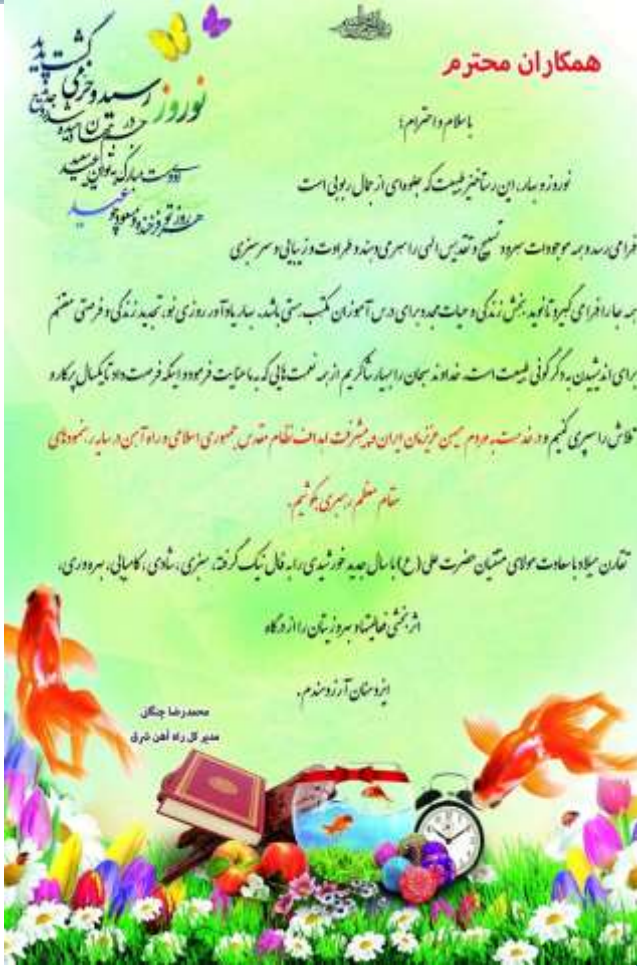 همکاران محترم
نوروز رسید و خرمی گشت پدید
هر روز تو فرخنده و مسعود چو عید
با سلام و احترام؛
نوروز و بهار، این رستاخیز طبیعت که جلوه‌ای از جمال ربوبی است
فرامی رسد و همه موجودات سرود تسبیح و تقدیس الهی را سر می دهند و طراوت و زیبایی و سرسبزی
همه جا را فرا می گیرد تا نوید بخش زندگی و حیات مجدد برای درس آموزان مکتب هستی باشد. بهار یادآور روزی نو، تجدید زندگی و فرصتی مغتنم
برای اندیشیدن به دگرگونی طبیعت است. خداوند سبحان را بسیار شاکریم از همه نعمت هایی که به ما عنایت فرمود و اینکه فرصت داد تا یکسال پرکار و
تلاش را سپری کنیم و در خدمت به مردم میهن عزیزمان ایران و پیشرفت اهداف نظام مقدس جمهوری اسلامی و راه آهن در سایه رهنمودهای
مقام معظم رهبری بکوشیم.
تقارن میلاد با سعادت مولای متقیان حضرت علی (ع) با سال جدید خورشیدی را به فال نیک گرفته، سبزی، شادی، کامیابی، بهره وری،
اثر بخشی فعالیتها و بهروزیتان را از درگاه
ایزد منان آرزومندم.
محمدرضا چنگان
مدیر کل راه آهن شرق